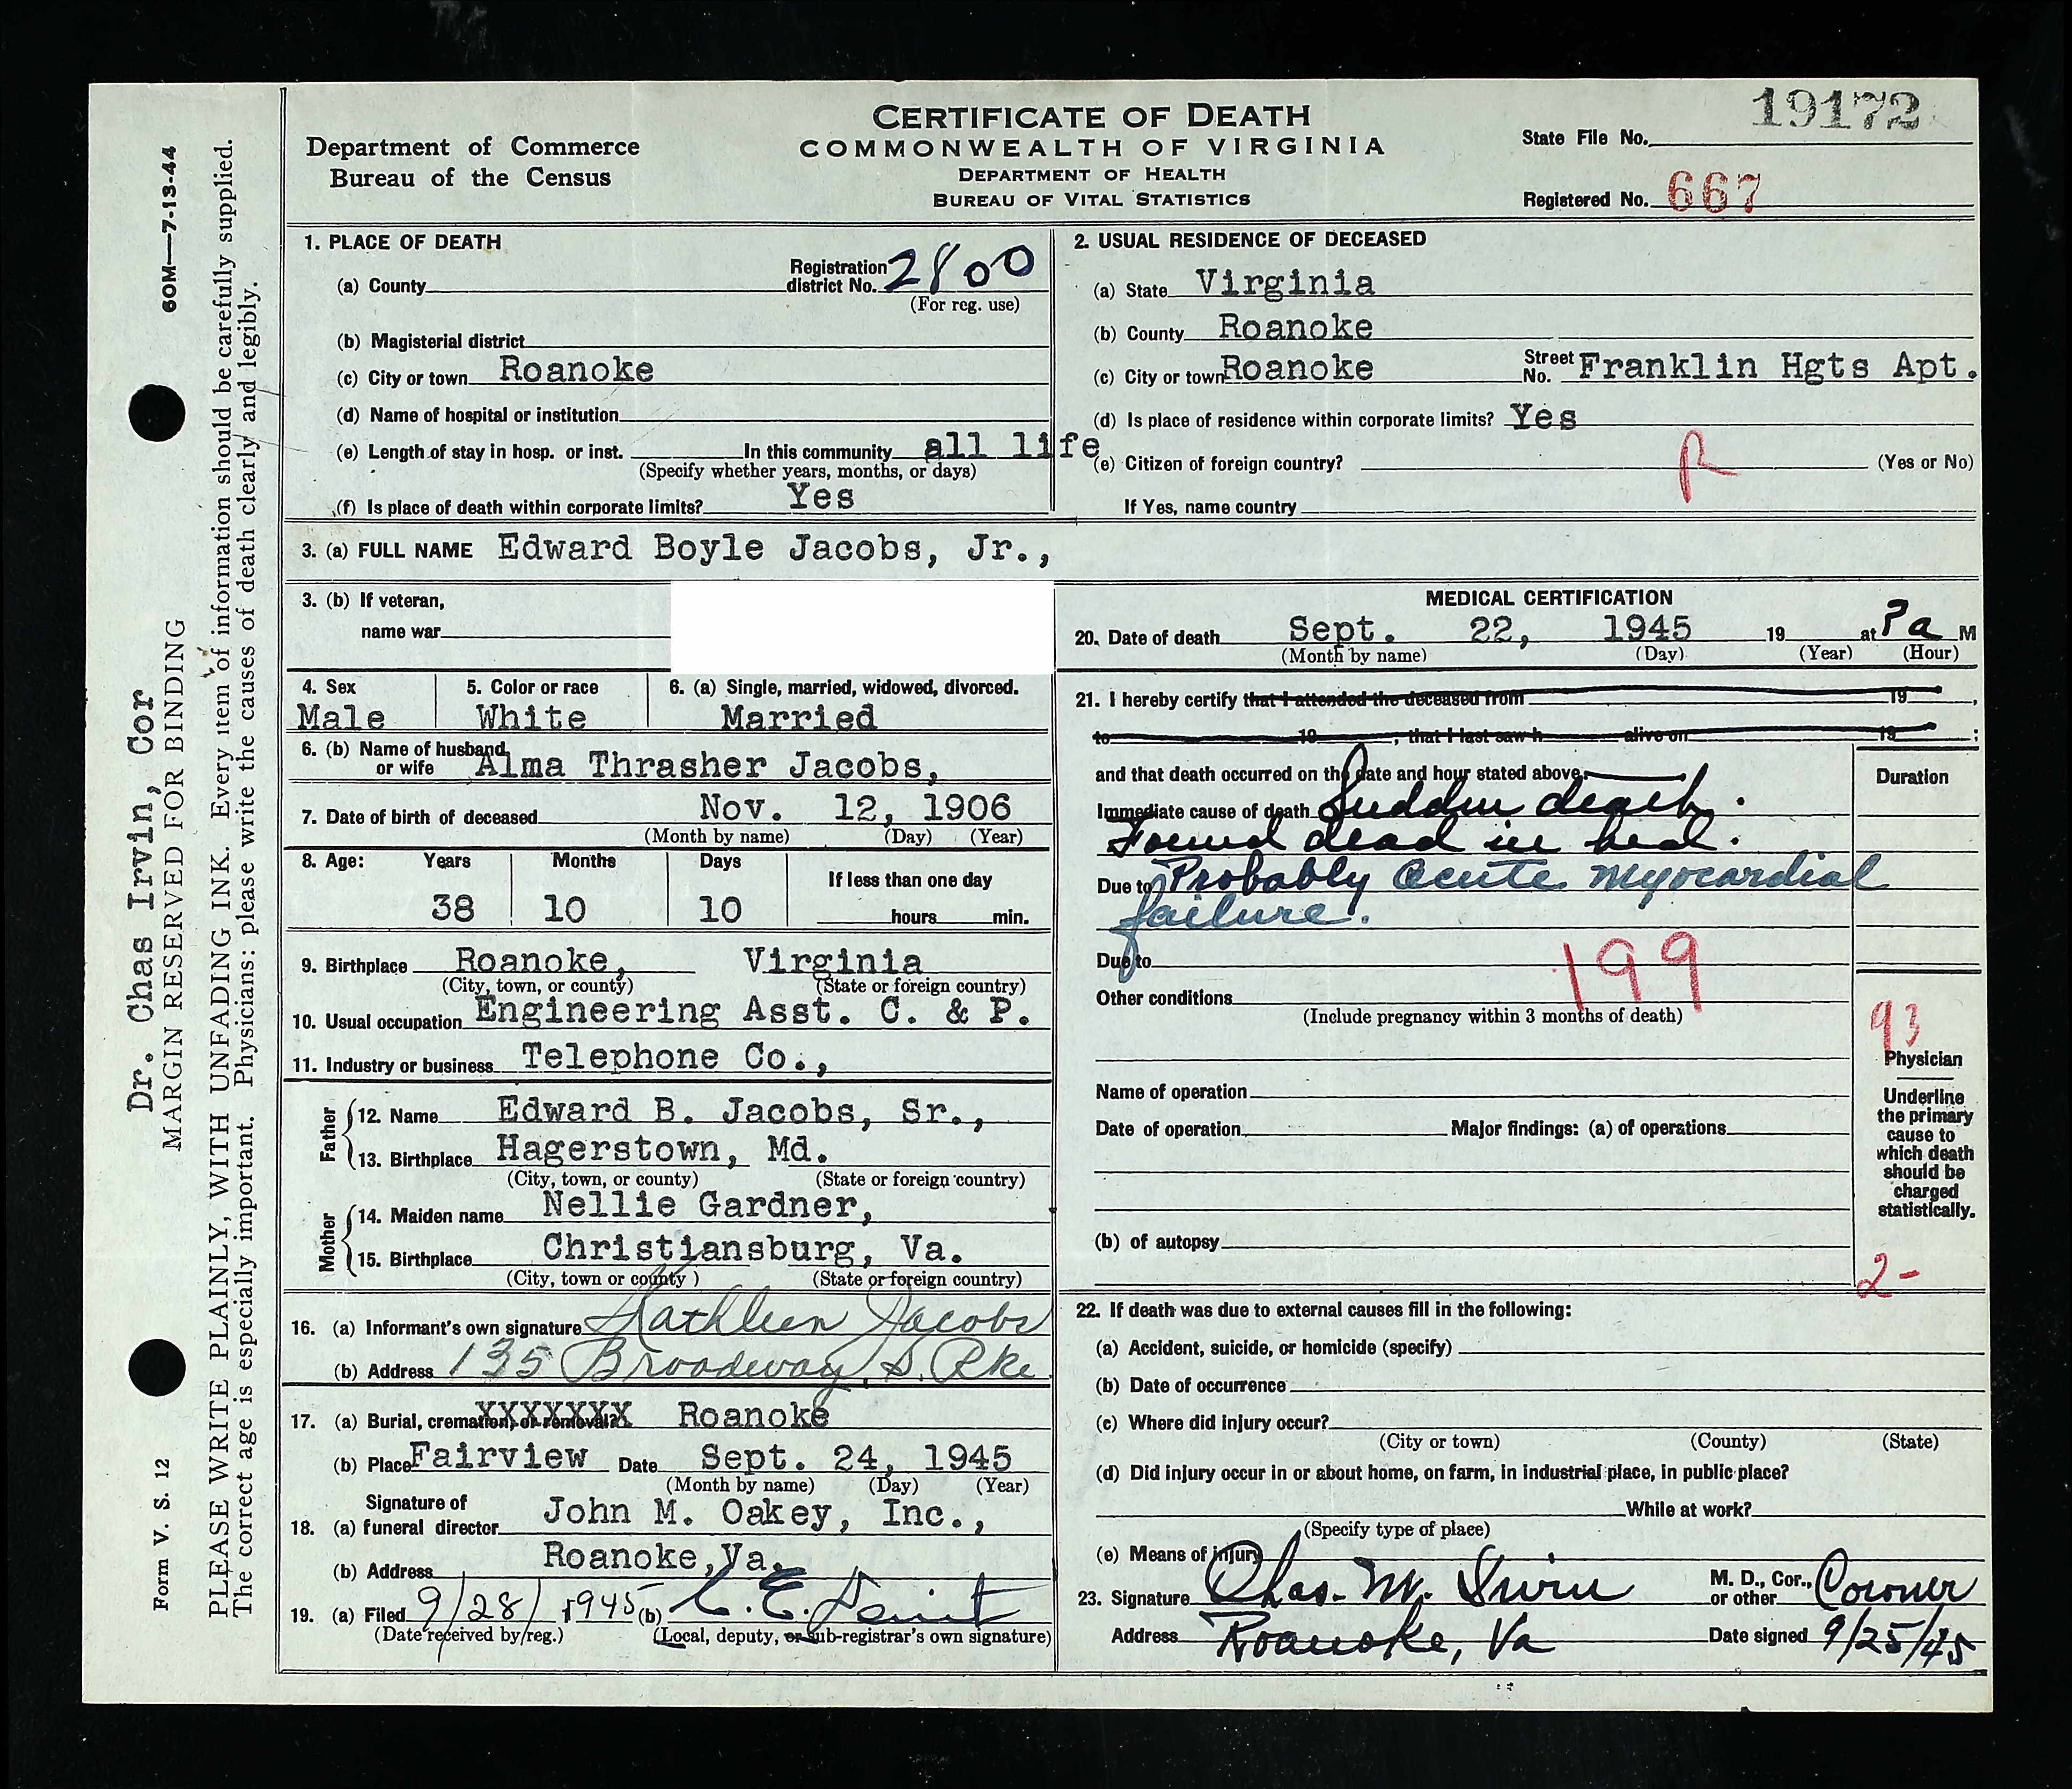 60M—7-13-44
Dr. Chas Irvin, Cor
MARGIN RESERVED FOR BINDING
PLEASE WRITE PLAINLY, WITH UNFADING INK. Every item of information should be carefully supplied.
The correct age is especially important. Physicians: please write the causes of death clearly and legibly.
Form V. S. 12
Department of Commerce
Bureau of the Census
CERTIFICATE OF DEATH
COMMONWEALTH OF VIRGINIA
DEPARTMENT OF HEALTH
BUREAU OF VITAL STATISTICS
19172
State File No.
Registered No. 667
1. PLACE OF DEATH
(a) County Registration district No. 2800
(For reg. use)
(b) Magisterial district
(c) City or town Roanoke
(d) Name of hospital or institution
(e) Length of stay in hosp. or inst. In this community all life
(Specify whether years, months, or days)
(f) Is place of death within corporate limits? Yes
2. USUAL RESIDENCE OF DECEASED
(a) State Virginia
(b) County Roanoke
(c) City or town Roanoke Street No. Franklin Hgts Apt.
(d) Is place of residence within corporate limits? Yes
(e) Citizen of foreign country? R (Yes or No)
If Yes, name country
3. (a) FULL NAME Edward Boyle Jacobs, Jr.,
3. (b) If veteran,
name war
4. Sex 5. Color or race 6. (a) Single, married, widowed, divorced.
Male White Married
6. (b) Name of husband or wife Alma Thrasher Jacobs,
7. Date of birth of deceased Nov. 12, 1906
(Month by name) (Day) (Year)
8. Age: Years Months Days If less than one day
38 10 10 hours min.
9. Birthplace Roanoke, Virginia
(City, town, or county) (State or foreign country)
10. Usual occupation Engineering Asst. C. & P.
11. Industry or business Telephone Co.,
Father
12. Name Edward B. Jacobs, Sr.,
13. Birthplace Hagerstown, Md.
(City, town, or county) (State or foreign country)
Mother
14. Maiden name Nellie Gardner,
15. Birthplace Christiansburg, Va.
(City, town or county ) (State or foreign country)
16. (a) Informant's own signature Kathleen Jacobs
(b) Address 135 Broadway, S. Rke.
17. (a) Burial, cremation, or removal? XXXXXXX Roanoke
(b) Place Fairview Date Sept. 24, 1945
(Month by name) (Day) (Year)
18. Signature of
(a) funeral director John M. Oakey, Inc.,
(b) Address Roanoke, Va.
19. (a) Filed 9/28/ 1945 (b) C. E.
(Date received by reg.) (Local, deputy, or sub-registrar's own signature)
MEDICAL CERTIFICATION
20. Date of death Sept. 22, 1945 19 at ? a M
(Month by name) (Day) (Year) (Hour)
21. I hereby certify that I attended the deceased from 19 ,
to 19 , that I last saw h alive on 19 ;
and that death occurred on the date and hour stated above.
Duration
Immediate cause of death Sudden death.
Found dead in bed.
Due to Probably Acute Myocardial
failure.
Due to
199
Other conditions
(Include pregnancy within 3 months of death)
93
Physician
Underline
the primary
cause to
which death
should be
charged
statistically.
Name of operation
Date of operation Major findings: (a) of operations
(b) of autopsy
2-
22. If death was due to external causes fill in the following:
(a) Accident, suicide, or homicide (specify)
(b) Date of occurrence
(c) Where did injury occur?
(City or town) (County) (State)
(d) Did injury occur in or about home, on farm, in industrial place, in public place?
While at work?
(Specify type of place)
(e) Means of injury
23. Signature Chas. M. Irvin M. D., Cor., or other Coroner
Address Roanoke, Va Date signed 9/25/45